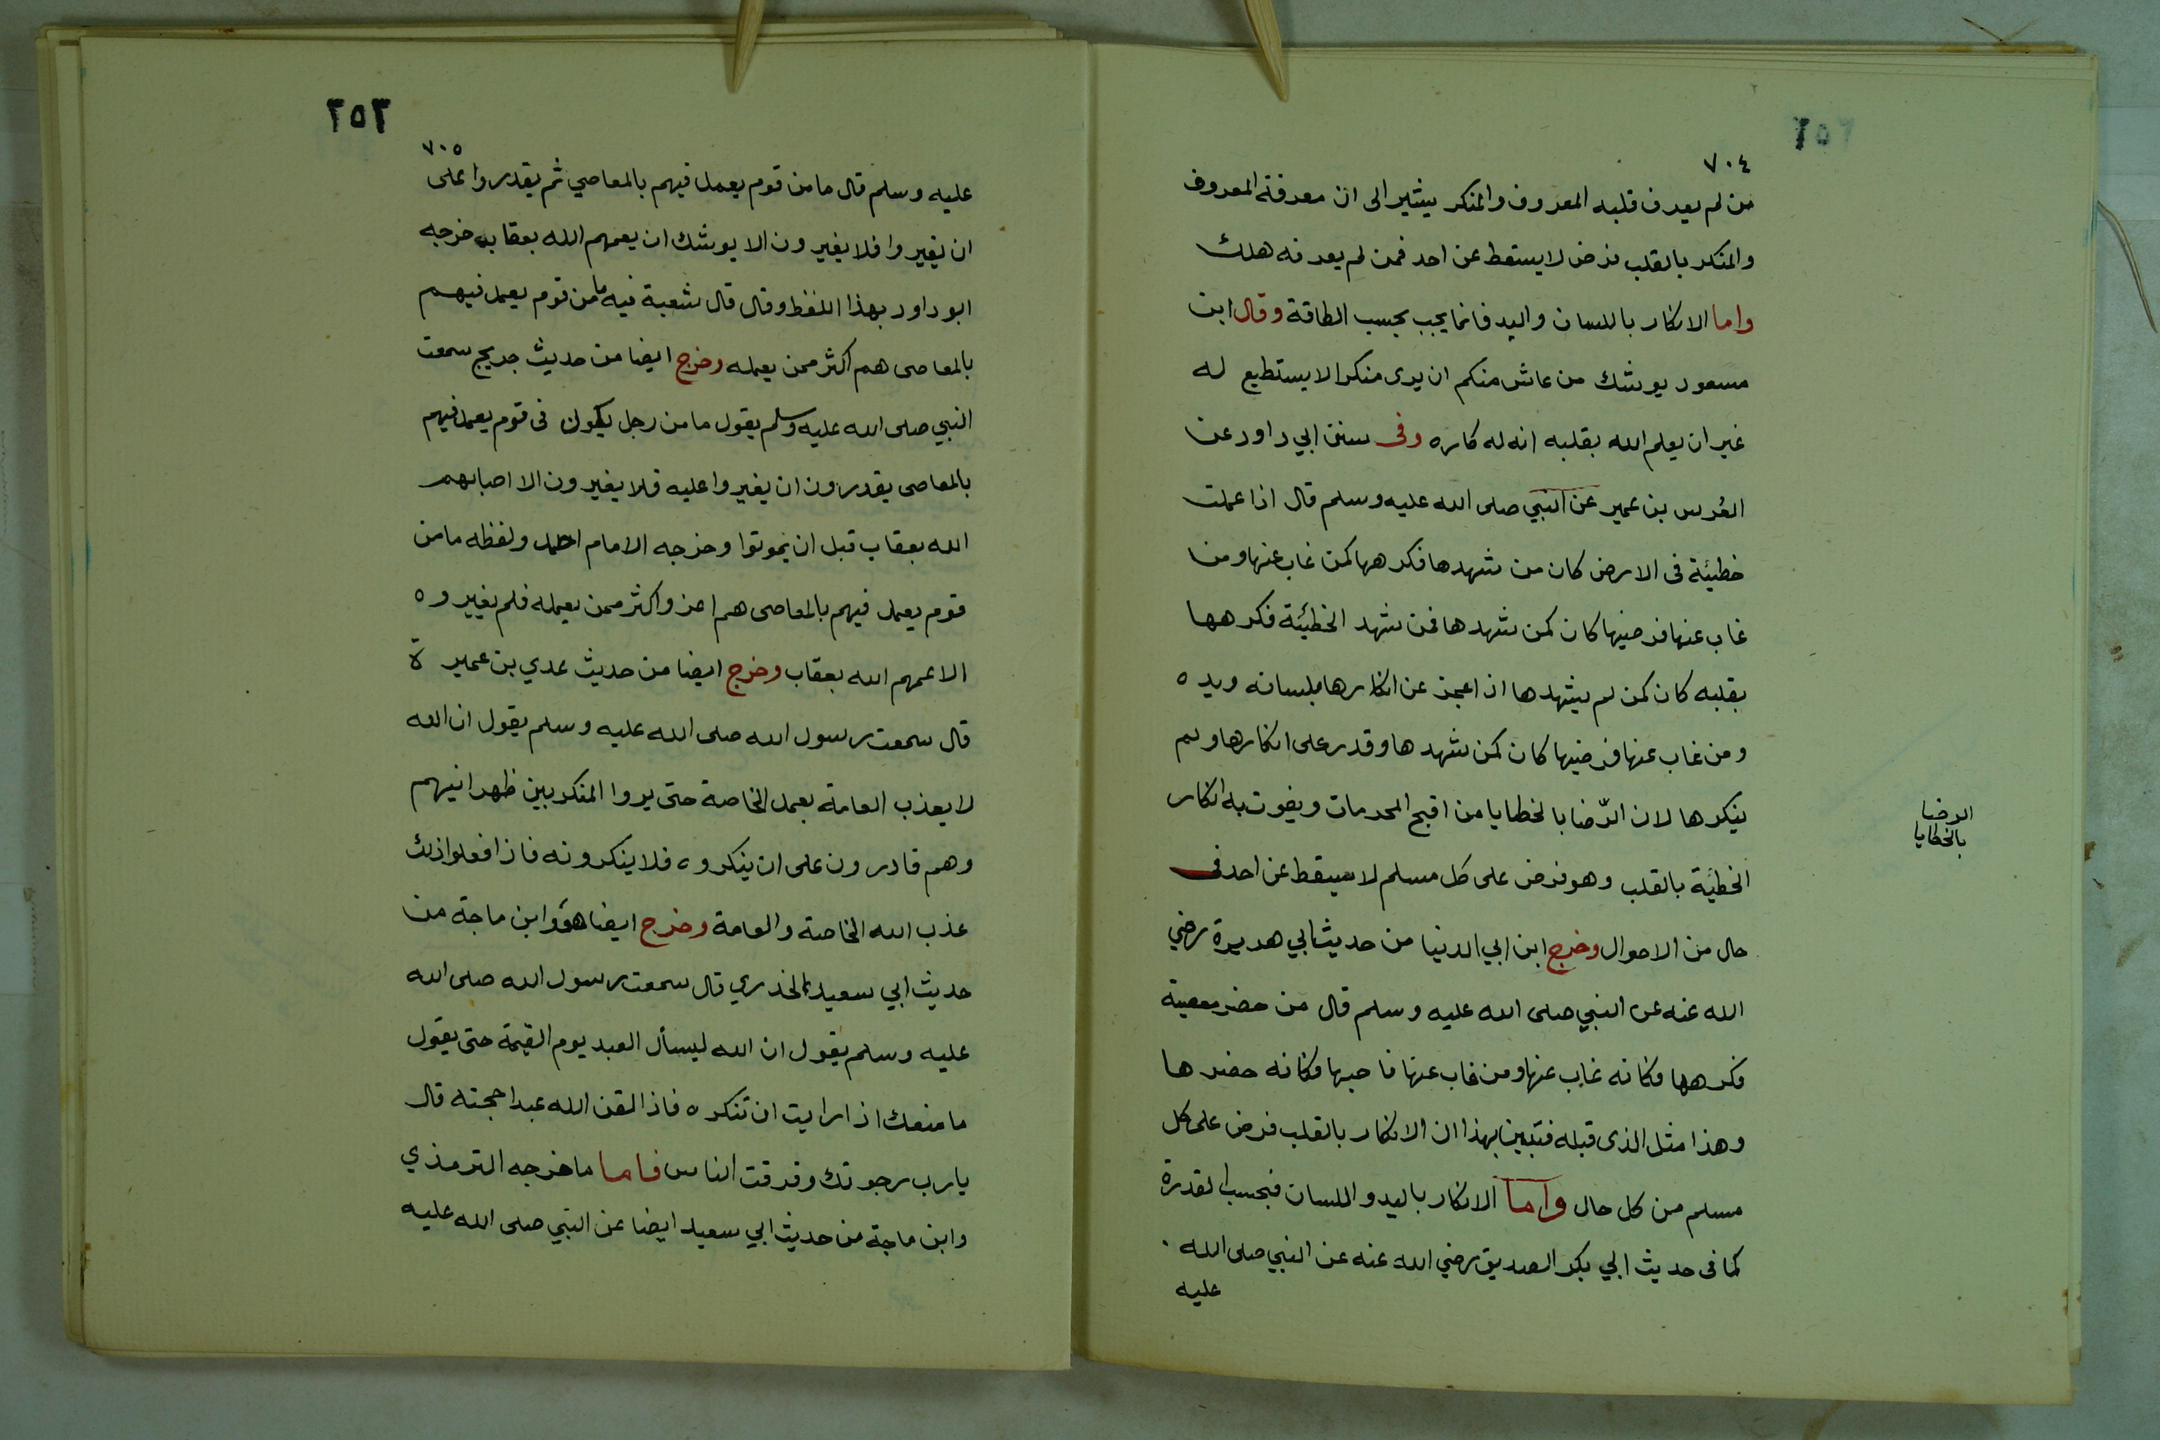 ٧٠٤
من لم يعرف قلبه المعروف والمنكر يشير الى ان معرفة المعروف
والمنكر بالقلب فرض لا يسقط عن احد فمن لم يعرفه هلك
واما الانكار باللسان واليد فانما يجب بحسب الطاقة وقال ابن
مسعود يوشك من عاش منكم ان يرى منكرا لا يستطيع له
غير ان يعلم الله بقلبه انه له كاره وفى سنن ابي داود عن
العُرس بن عمير عن النبي صلى الله عليه وسلم قال اذا عملت
خطيئة فى الارض كان من شهدها فكرهها كمن غاب عنها ومن
غاب عنها فرضيها كان كمن شهدها فمن شهد الخطيئة فكرهها
بقلبه كان كمن لم يشهدها اذا عجز عن انكارها بلسانه ويده
ومن غاب عنها فرضيها كان كمن شهدها وقدر على انكارها ولم
ينكرها لان الرّضا بالخطايا من اقبح المحرمات ويفوت به انكار
الخطيئة بالقلب وهو فرض على كل مسلم لا يسقط عن احد فى
حال من الاحوال وخرج ابن ابي الدنيا من حديث ابي هريرة رضي
الله عنه عن النبي صلى الله عليه وسلم قال من حضر معصية
فكرهها فكانه غاب عنها ومن غاب عنها فاحبها فكانه حضرها
وهذا مثل الذى قبله فتبين بهذا ان الانكار بالقلب فرض على كل
مسلم من كل حال واما الانكار باليد واللسان فبحسب القدرة
كما فى حديث ابي بكر الصديق رضي الله عنه عن النبي صلى الله
عليه
الرضا
بالخطايا
٢٥٣
٧٠٥
عليه وسلم قال ما من قوم يعمل فيهم بالمعاصي ثم يقدروا على
ان يغيروا فلا يغيرون الا يوشك ان يعمهم الله بعقابه خرجه
ابو داود بهذا اللفظ وقال قال شعبة فيه ما من قوم يعمل فيهم
بالمعاصى هم اكثر ممن يعمله وخرج ايضا من حديث جريج سمعت
النبي صلى الله عليه وسلم يقول ما من رجل يكون فى قوم يعمل فيهم
بالمعاصى يقدرون ان يغيروا عليه فلا يغيرون الا اصابهم
الله بعقاب قبل ان يموتوا وخرجه الامام احمد ولفظه ما من
قوم يعمل فيهم بالمعاصى هم اعز واكثر ممن يعمله فلم يغيروه
الا عمهم الله بعقاب وخرج ايضا من حديث عدي بن عمير ة
قال سمعت رسول الله صلى الله عليه وسلم يقول ان الله
لا يعذب العامة بعمل الخاصة حتى يروا المنكر بين ظهرانيهم
وهم قادرون على ان ينكروه فلا ينكرونه فاذا فعلوا ذلك
عذب الله الخاصة والعامة وخرج ايضا هو وابن ماجة من
حديث ابي سعيد الخدري قال سمعت رسول الله صلى الله
عليه وسلم يقول ان الله ليسأل العبد يوم القيمة حتى يقول
ما منعك اذا رايت ان تنكره فاذا لقن الله عبدا حجته قال
يا رب رجوتك وفرقت الناس فاما ما خرجه الترمذي
وابن ماجة من حديث ابي سعيد ايضا عن النبي صلى الله عليه